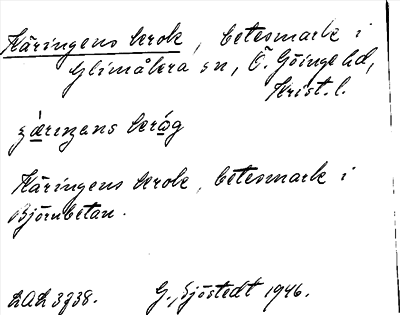 Käringens krok, betesmark i
Glimåkra sn, Ö. Göinge hd,
Krist. l.
Käringens krok, betesmark i
Björnbetan.
LAL 3738. G. Sjöstedt 1946.